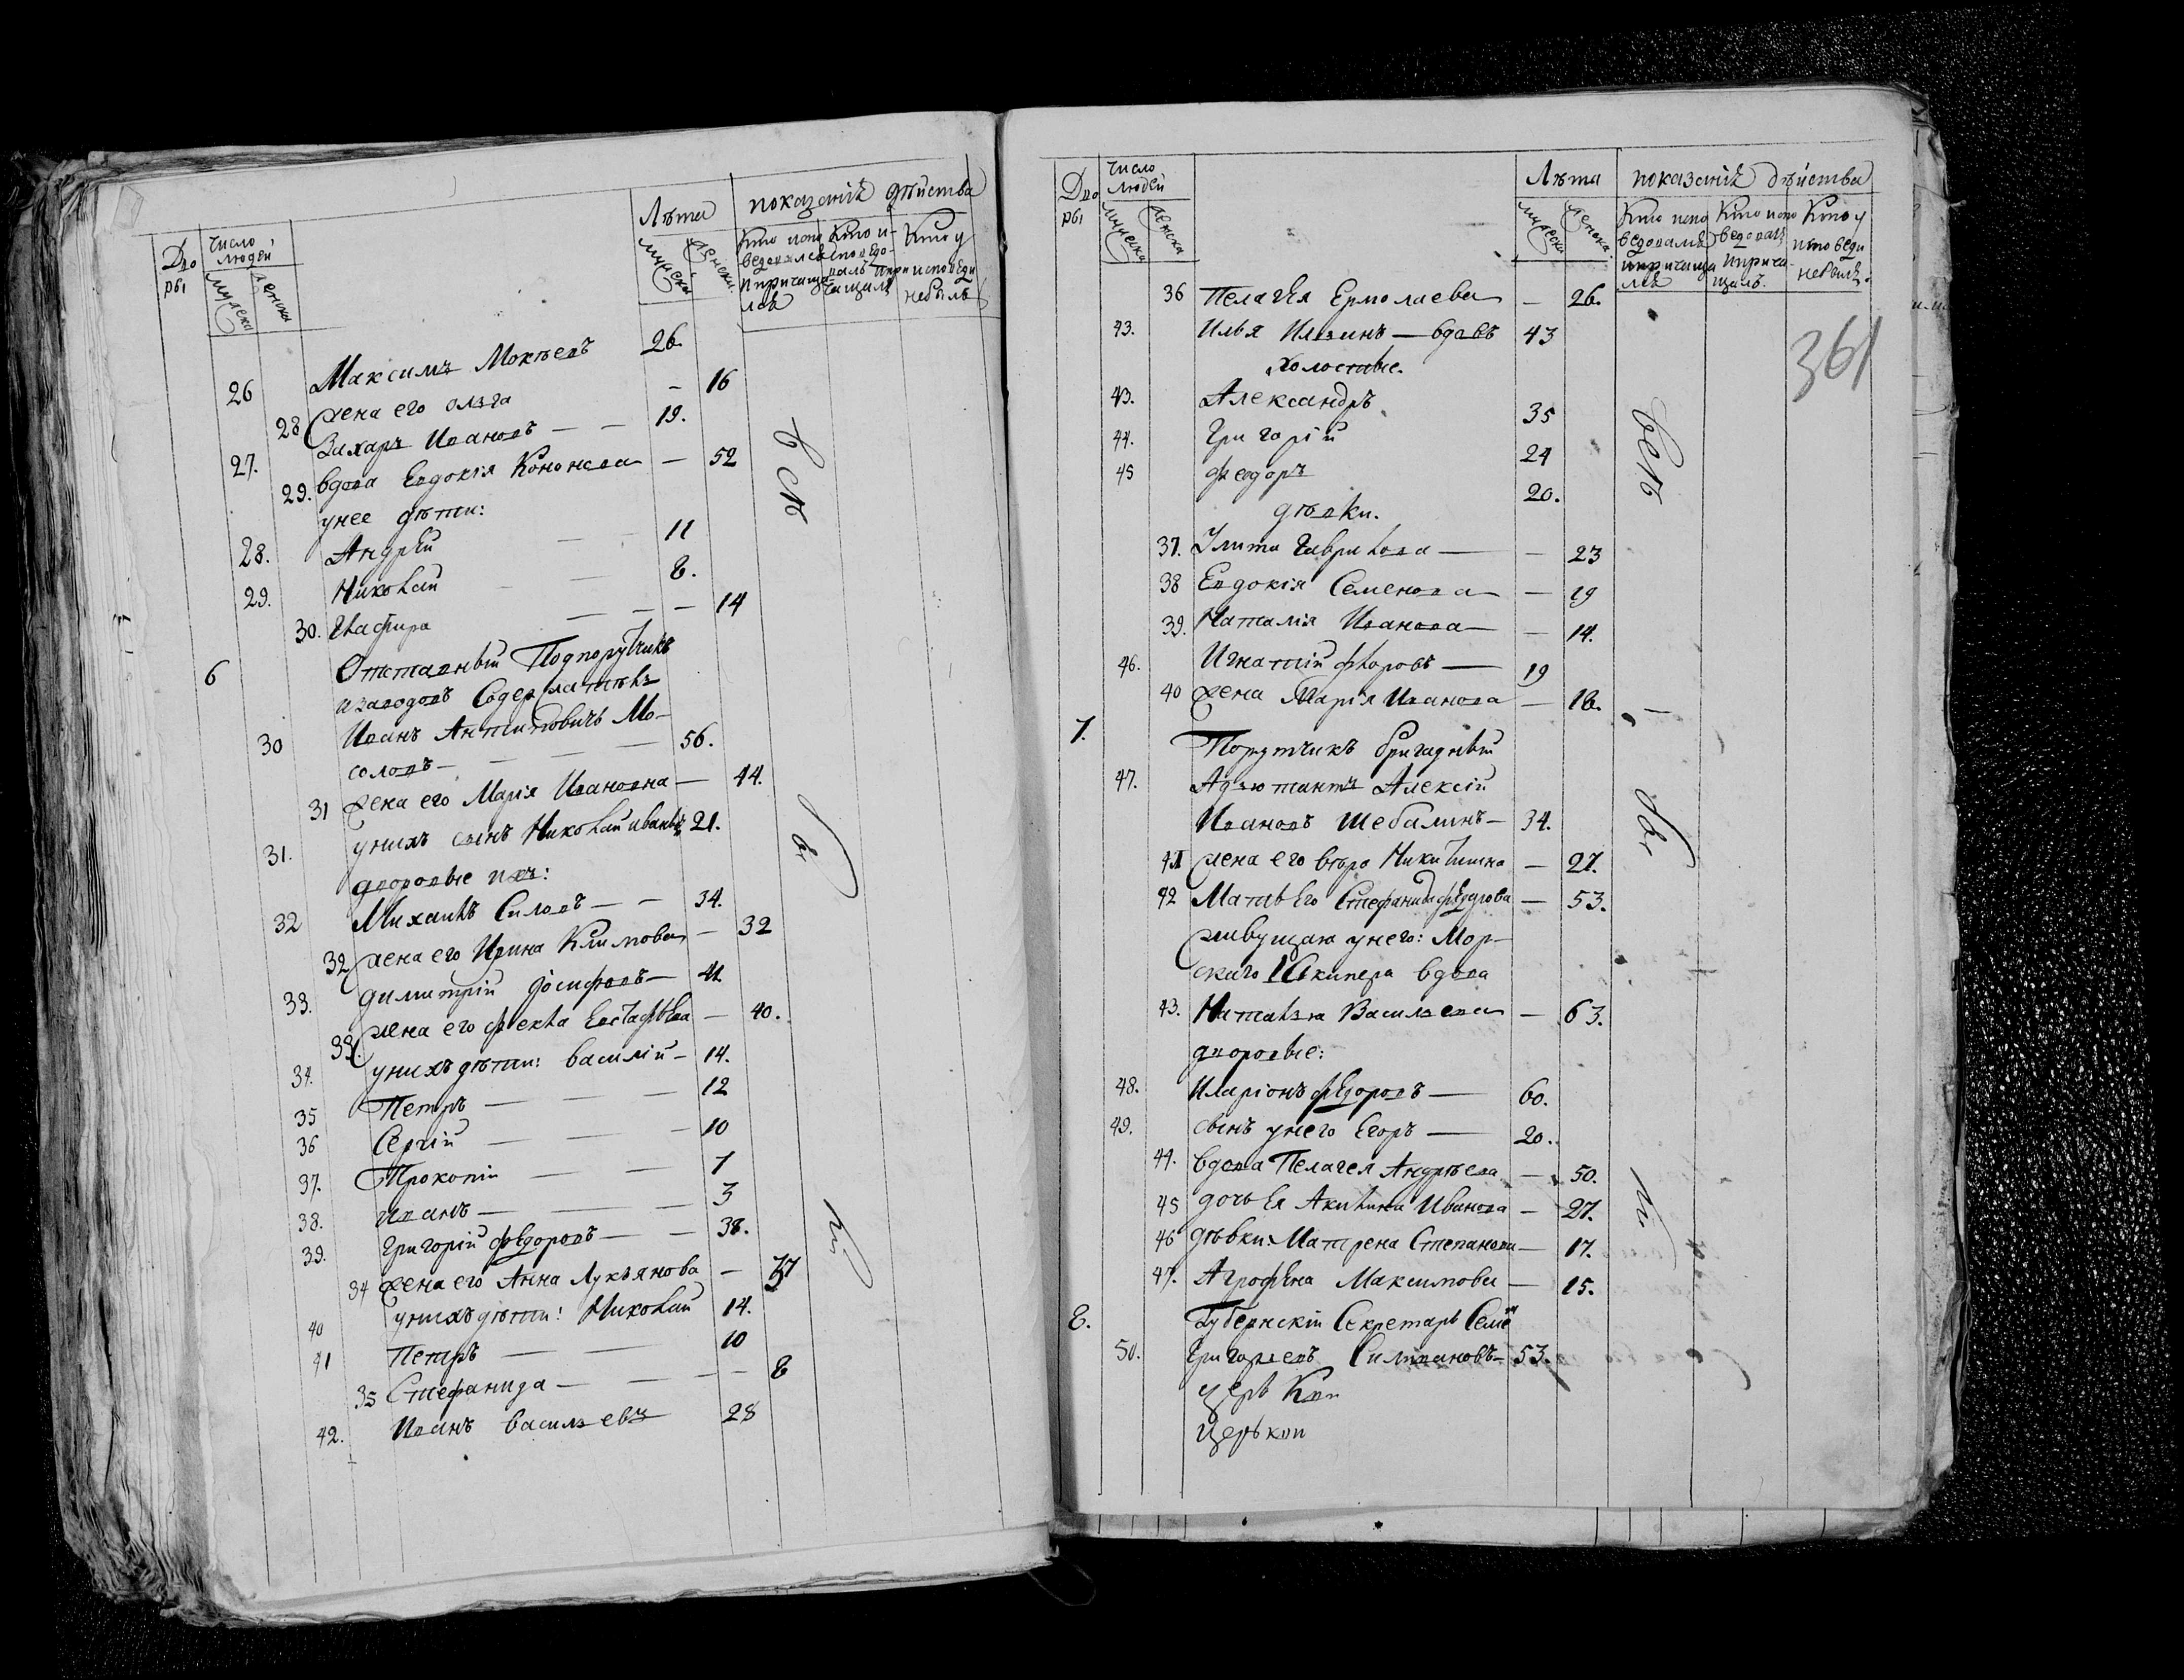 Дво ры
Число людей
мужеска
женска
Лѣта
мужеска
женска
показаніе дѣйства
Кто испо ведовался и причаща лся
Кто и- споведо- валъ
Кто у исповеди небылъ
26 Максимъ Мокѣевъ 26.
28 жена его Олзга — 16
27. Захаръ Ивановъ — — 19.
29. вдова Евдокія Кононова — 52
унее дѣти:
28. Андрей — — 11
29. Николай — — 8.
30. Глафира — — — 14
6 Отставный Подпорутчикъ
изаводовъ Содержатель
30 Иванъ Антиповичъ Мо-
соловъ — — — 56.
31 жена его Марія Ивановна — 44.
31. унихъ сынъ Николай 21.
дворовые ихъ:
32 Михаилъ Силовъ — — 34.
32 жена его Ирина Климова — 32
33. Димитрій Іосифовъ — 41
33. жена его Фекла Евстафьева — 40.
34. унихъ дѣти: Василій — 14.
35 Петръ — — — 12
36 Сергій — — — 10
37. Прокопій — — 7
38. Иванъ — — — 3
39. Григорій Федоровъ — — 38.
34 жена его Анна Лукьянова — 37
40 унихъ дѣти: Николай 14.
41 Петръ — — 10
35 Стефанида — — — — 8
42. Иванъ Васильевъ 28
всѣ
бы
ли
Дво ры
Число людей
мужеска
женска
Лѣта
мужеска
женска
показаніе дѣйства
Кто испо ведовалъ и причаща лся
Кто испо ведовалъ и прича- щалъ.
Кто у исповеди небылъ.
361
36 Пелагея Ермолаева — 26.
43. Илья Илзинъ — вдовъ 43
холостые.
43. Александръ 35
44. Григорій 24
45 Феодоръ 20.
дѣвки.
37. Улита Гаврилова — — 23
38 Евдокія Семенова — 19
39. Наталія Иванова — — 14.
46. Игнатій Флоровъ — 19
40 жена Марія Иванова — 18.
7. Порутчикъ бригадный
47. Адъютантъ Алексій
Ивановъ Шебалинъ — 34.
41 жена его Вѣра Никитишна — 27.
42 Мать Его Стефанида Федорова — 53.
живущая унего: Мор-
скаго Шкипера вдова
43. Наталья Васильева — 63.
дворовые:
48. Иларіонъ Федоровъ — 60.
49. сынъ унего Егоръ — 20.
44. вдова Пелагея Андрѣева — 50.
45 дочь Ея Акилина Иванова — 27.
46 дѣвки: Матрена Степанова — 17.
47. Агрофена Максимова — 15.
8. Губернскій Секретарь Семе
50. Григорьевъ Силвановъ — 53.
церь Кви
Церькви
всѣ
бы
ли